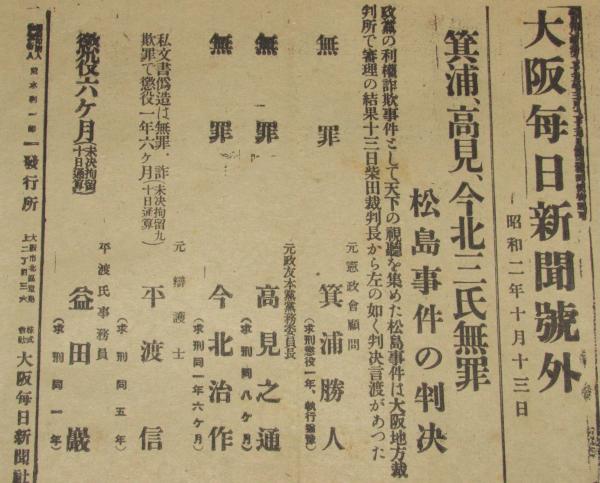 大阪毎日新聞號外
昭和二年十月十三日
箕浦、高見、今北三氏無罪
松島事件の判决
政黨の利權詐欺事件として天下の視聽を集めた松島事件は大阪地方裁
判所で審理の結果十三日柴田裁判長から左の如く判决言渡があつた
元憲政會顧問
無罪 箕浦勝人
(求刑懲役一年、執行猶豫)
元政友本黨黨務委員長
無罪 高見之通
(求刑同八ケ月)
無罪 今北治作
(求刑同一年六ケ月)
元辯護士
私文書僞造は無罪、詐
欺罪で懲役一年六ケ月
(未决拘留九
十日通算)
平渡信
(求刑同五年)
平渡氏事務員
懲役六ケ月
(未决拘留
十日通算)
益田巖
(求刑同一年)
發行所
大阪市北區堂島
株式
會社
大阪毎日新聞社